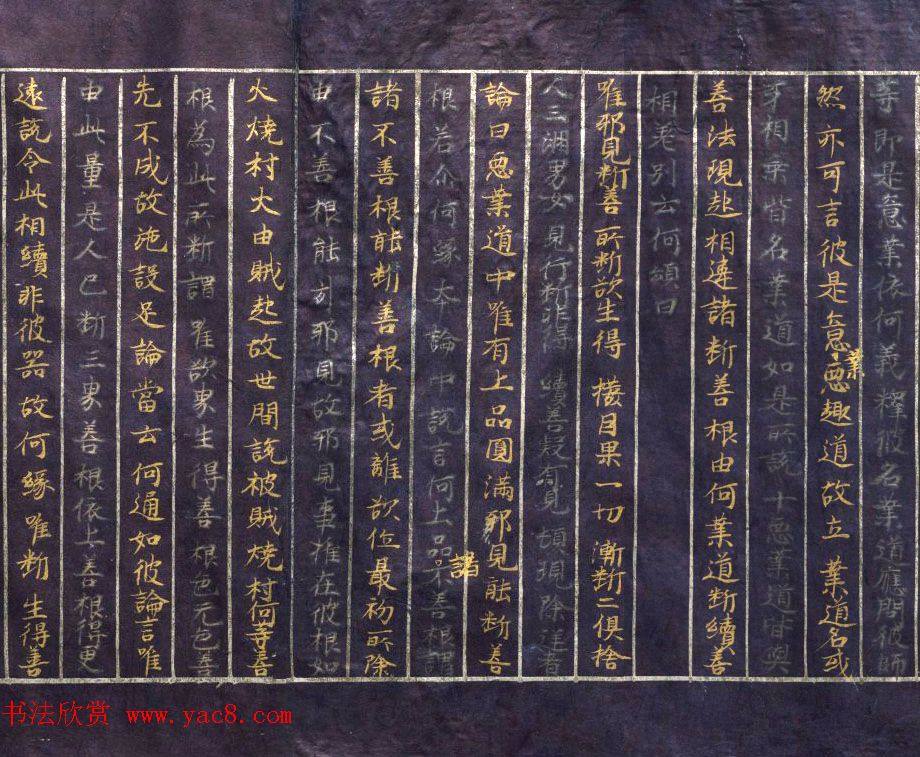 等即是意業依何義釋彼名業道應問彼師
然亦可言彼是意惡趣道故立業道名或
業
互相乗皆名業道如是所說十惡業道皆與
善法現起相違諸斷善根由何業道斷續善
相差別云何頌曰
唯邪見斷善所斷欲生得撥因果一切漸斷二俱捨
人三洲男女見行斷非得續善疑有見頓現除逆者
論曰惡業道中唯有上品圓滿邪見能斷善
根若介何緣本論中說言何上品不善根謂
諸
諸不善根能斷善根者或離欲位最初所除
由不善根能引邪見故邪見事推在彼根如
火燒村火由賊起故世間說被賊燒村何等善
根為此所斷謂唯欲界生得善根色无色善
先不成故施設足論當云何通如彼論言唯
由此量是人已斷三界善根依上善根得更
遠說令此相續非彼器故何緣唯斷生得善
书法欣赏 www.yac8.com